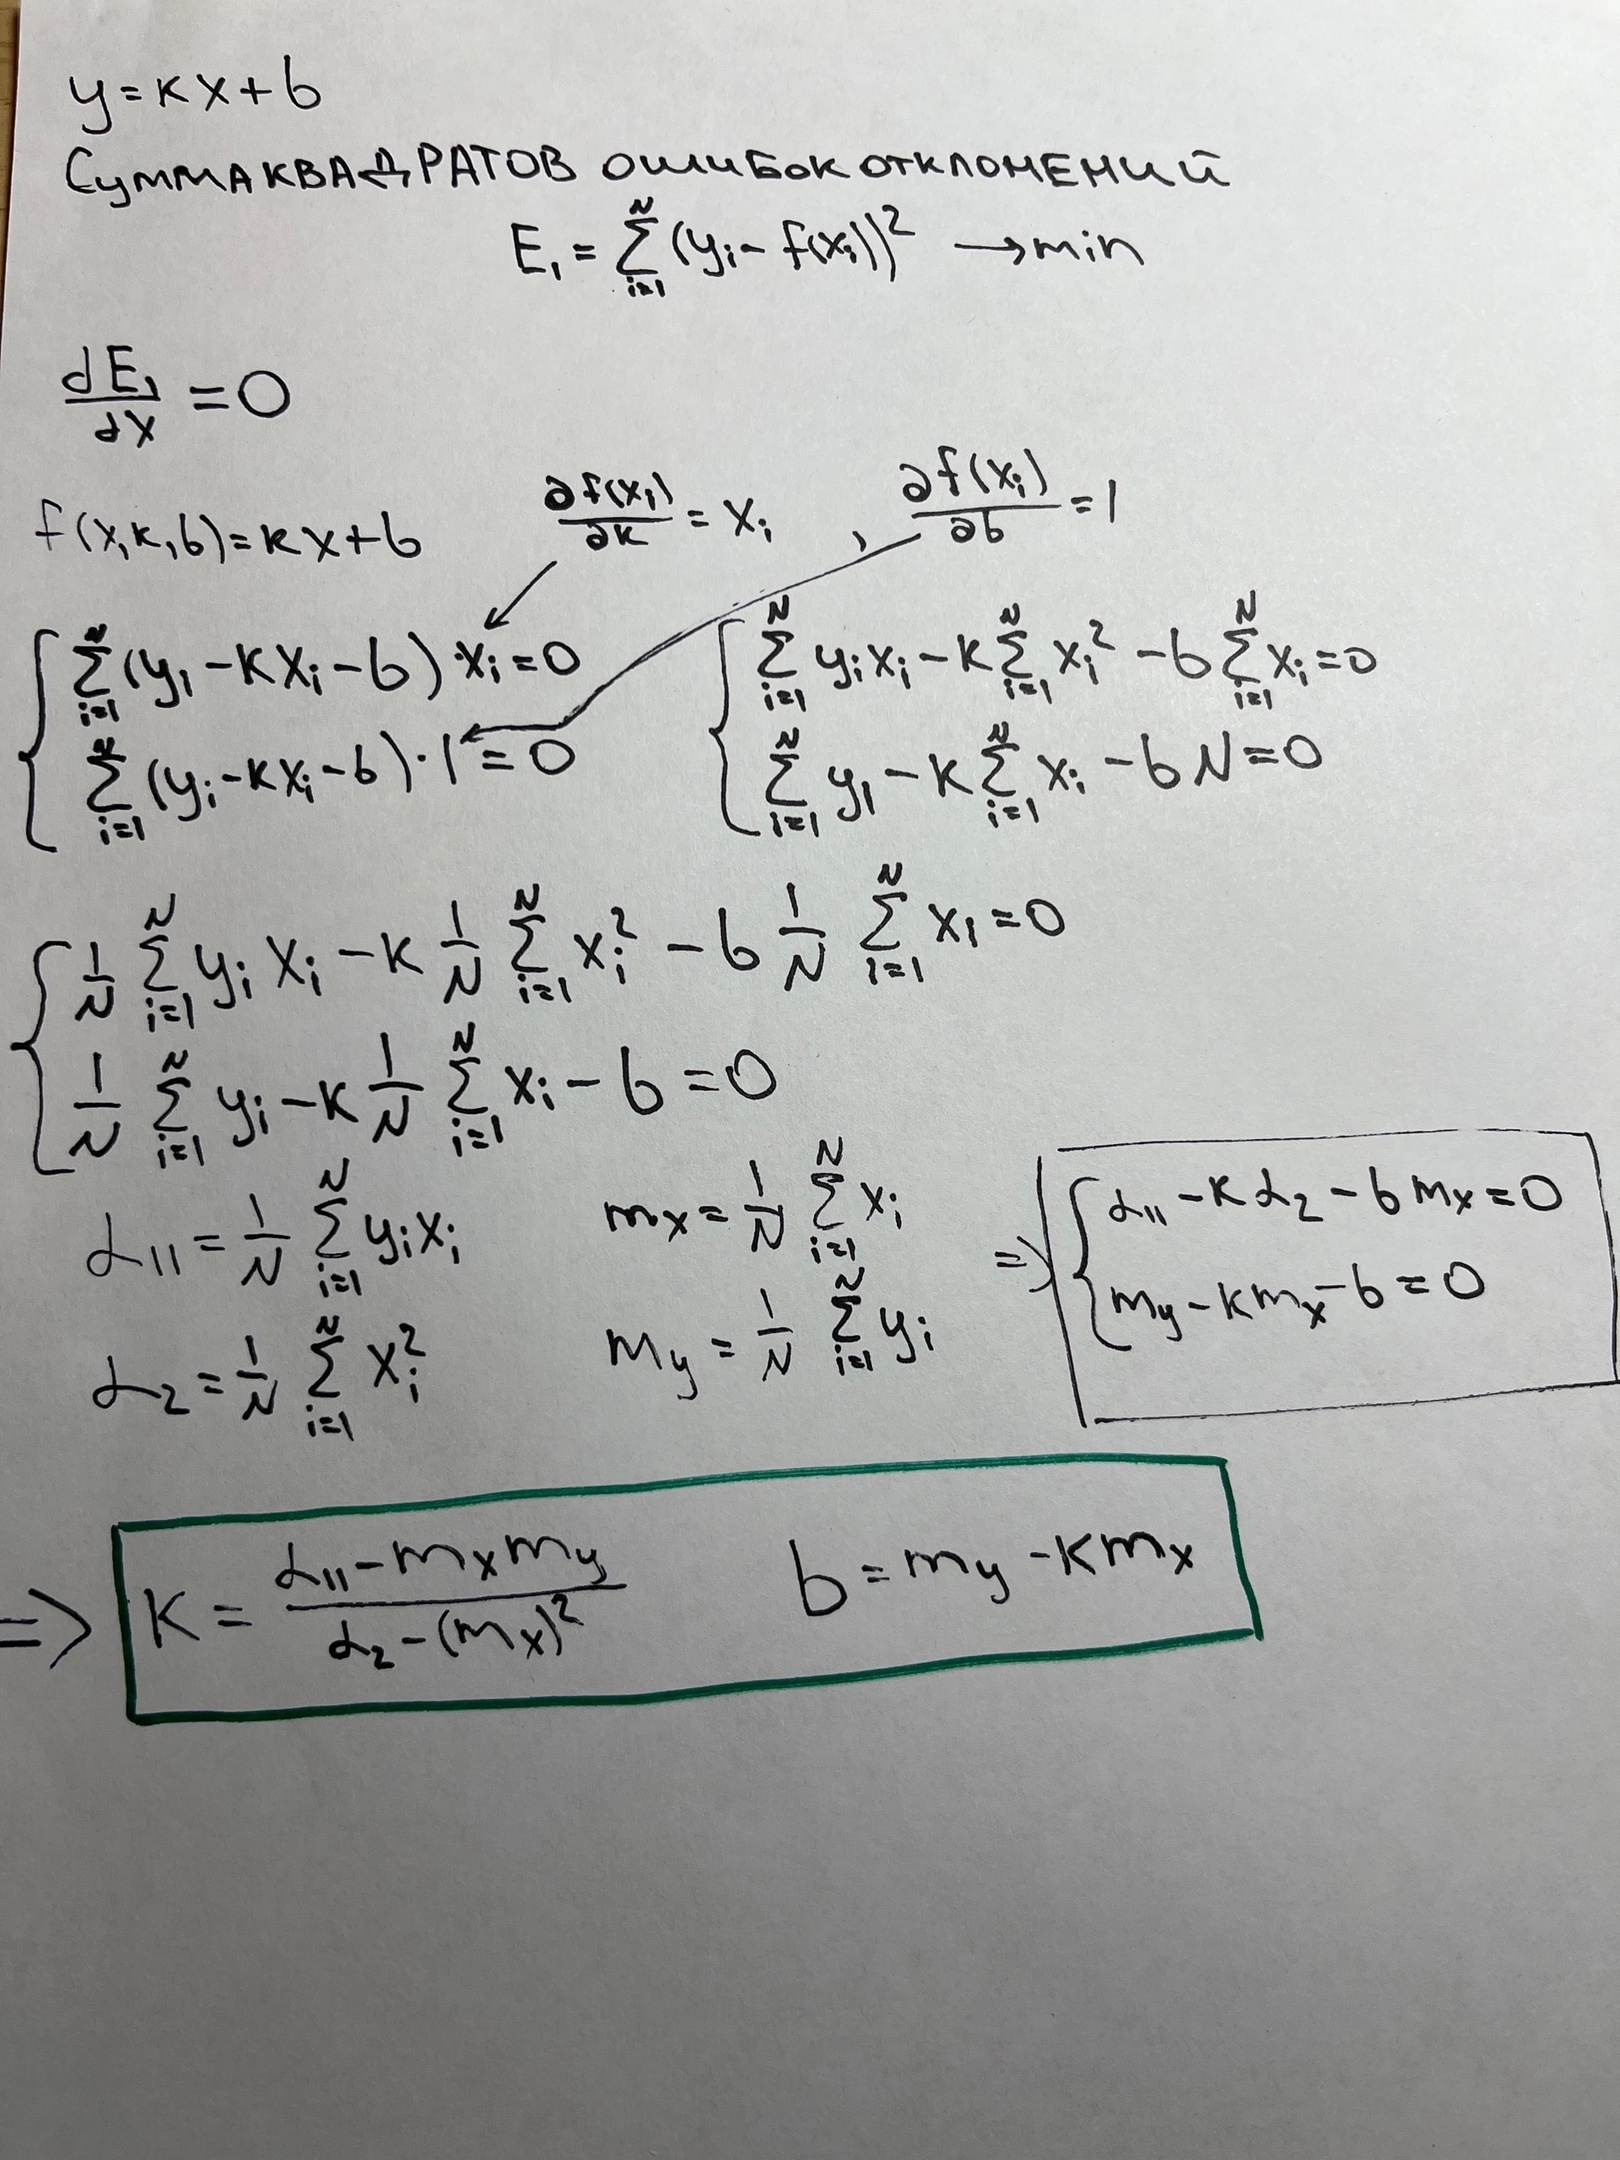 y = kx + b
Сумма квадратов ошибок отклонений
E₁ = ∑_{i=1}^{N} (yᵢ - f(xᵢ))² → min
dE₁/dx = 0
f(x, k, b) = kx + b    ∂f(xᵢ)/∂k = xᵢ ,    ∂f(xᵢ)/∂b = 1
{ ∑_{i=1}^{N} (yᵢ - kxᵢ - b) · xᵢ = 0    { ∑_{i=1}^{N} yᵢxᵢ - k ∑_{i=1}^{N} xᵢ² - b ∑_{i=1}^{N} xᵢ = 0
∑_{i=1}^{N} (yᵢ - kxᵢ - b) · 1 = 0    ∑_{i=1}^{N} yᵢ - k ∑_{i=1}^{N} xᵢ - bN = 0
{ 1/N ∑_{i=1}^{N} yᵢ xᵢ - k 1/N ∑_{i=1}^{N} xᵢ² - b 1/N ∑_{i=1}^{N} xᵢ = 0
1/N ∑_{i=1}^{N} yᵢ - k 1/N ∑_{i=1}^{N} xᵢ - b = 0
α₁₁ = 1/N ∑_{i=1}^{N} yᵢxᵢ    mₓ = 1/N ∑_{i=1}^{N} xᵢ    ⇒ { α₁₁ - kα₂ - bmₓ = 0
α₂ = 1/N ∑_{i=1}^{N} xᵢ²    m_y = 1/N ∑_{i=1}^{N} yᵢ    m_y - kmₓ - b = 0
⇒ k = (α₁₁ - mₓm_y)/(α₂ - (mₓ)²)    b = m_y - kmₓ